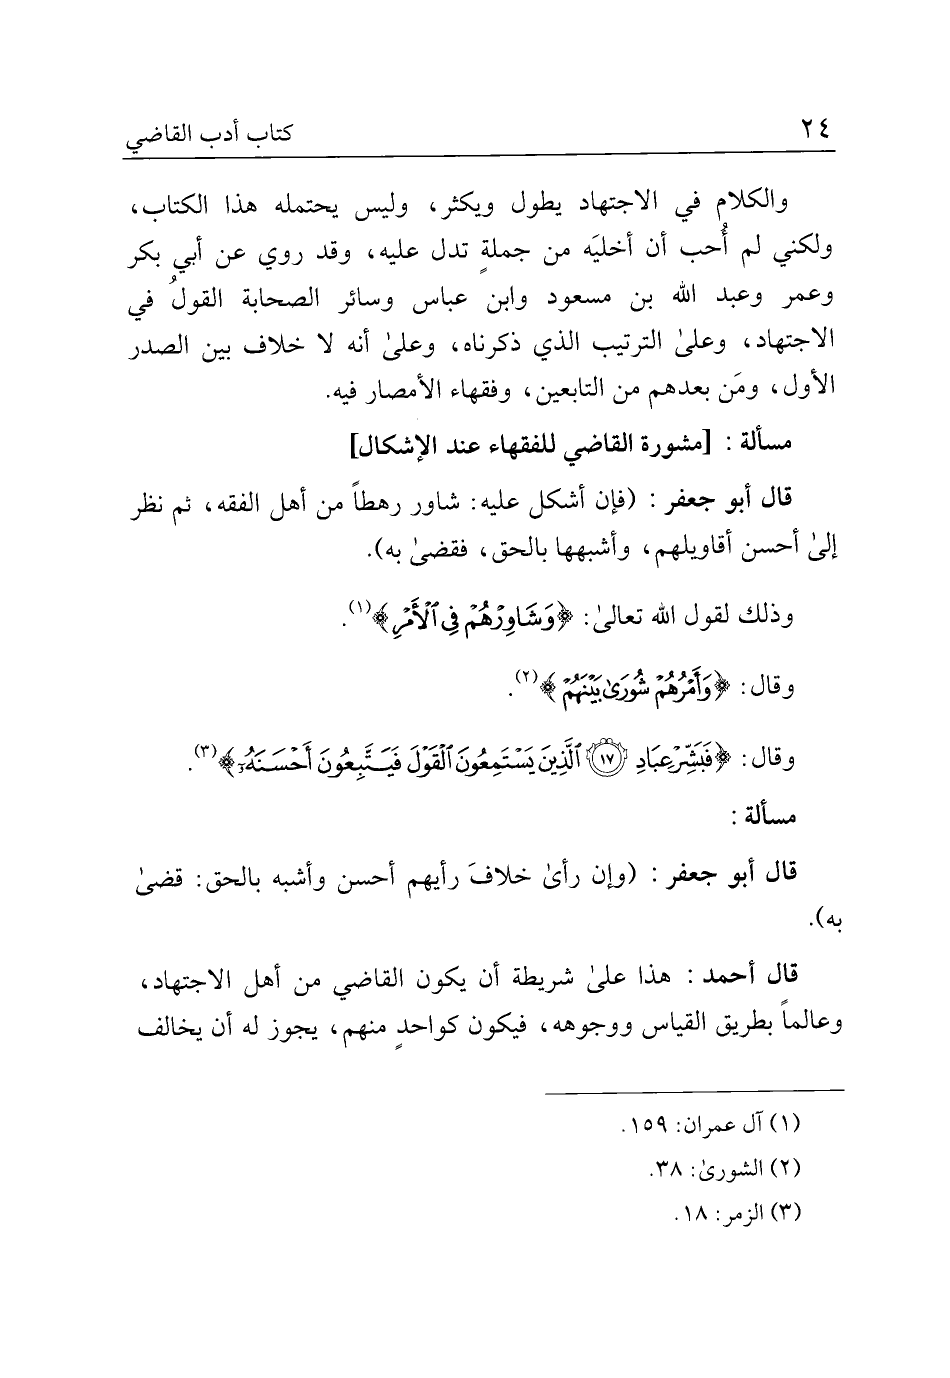 ٢٤ كتاب أدب القاضي
والكلام في الاجتهاد يطول ويكثر، وليس يحتمله هذا الكتاب،
ولكني لم أُحب أن أخليَه من جملةٍ تدل عليه، وقد روي عن أبي بكر
وعمر وعبد الله بن مسعود وابن عباس وسائر الصحابة القولُ في
الاجتهاد، وعلىٰ الترتيب الذي ذكرناه، وعلىٰ أنه لا خلاف بين الصدر
الأول، ومَن بعدهم من التابعين، وفقهاء الأمصار فيه.
مسألة : [مشورة القاضي للفقهاء عند الإشكال]
قال أبو جعفر : (فإن أشكل عليه: شاور رهطاً من أهل الفقه، ثم نظر
إلىٰ أحسن أقاويلهم، وأشبهها بالحق، فقضىٰ به).
وذلك لقول الله تعالىٰ: ﴿وَشَاوِرْهُمْ فِي ٱلْأَمْرِ﴾(١).
وقال: ﴿وَأَمْرُهُمْ شُورَىٰ بَيْنَهُمْ﴾(٢).
وقال: ﴿فَبَشِّرْ عِبَادِ ١٧ ٱلَّذِينَ يَسْتَمِعُونَ ٱلْقَوْلَ فَيَتَّبِعُونَ أَحْسَنَهُۥٓ﴾(٣).
مسألة :
قال أبو جعفر : (وإن رأىٰ خلافَ رأيهم أحسن وأشبه بالحق: قضىٰ
به).
قال أحمد : هذا علىٰ شريطة أن يكون القاضي من أهل الاجتهاد،
وعالماً بطريق القياس ووجوهه، فيكون كواحدٍ منهم، يجوز له أن يخالف
(١) آل عمران: ١٥٩.
(٢) الشورىٰ: ٣٨.
(٣) الزمر: ١٨.